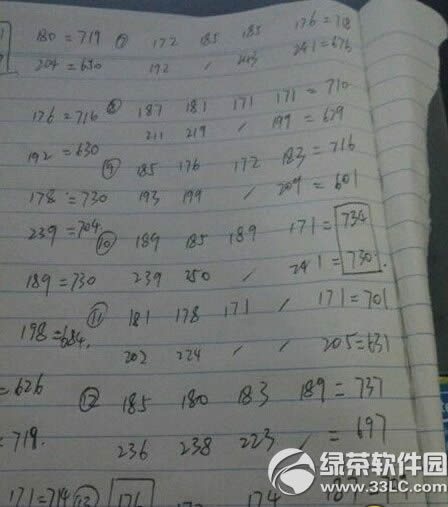 180 = 719 ⑦ 172 185 185 176 = 718
204 = 630 192 / 243 241 = 676
176 = 716 ⑧ 187 181 171 171 = 710
211 219 / 199 = 629
192 = 630
⑨ 185 176 172 183 = 716
178 = 730 193 199 / 209 = 601
239 = 704
⑩ 189 185 189 171 = 734
189 = 730 239 250 / 241 = 730.
⑪ 181 178 171 / 171 = 701
198 = 684.
202 224 / / 205 = 631
= 626 ⑫ 185 180 183 189 = 737
= 719. 236 238 223 / = 697
171 = 714 ⑬ 176 174
绿茶软件园
www.33LC.com